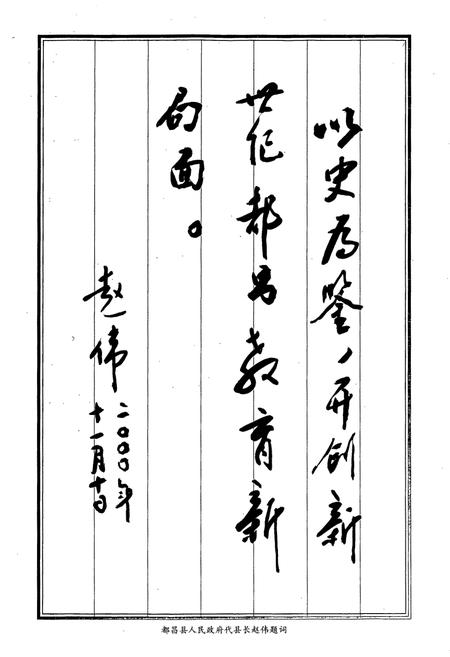 以史为鉴，开创新
世纪都昌教育新
局面。
赵伟
二〇〇〇年
十一月十日
都昌县人民政府代县长赵伟题词